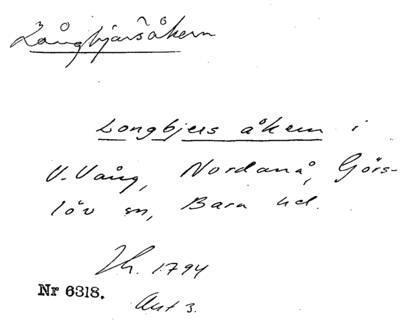 Långbjärsåkern
Longbjers åkern i
V. Vång, Nordanå, Görs-
löv sn, Bara hd.
1794
Nr 6318.
Akt 3.